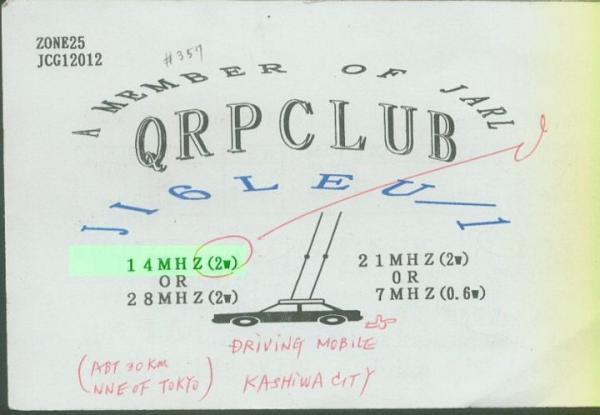 ZONE25
JCG12012
#357
A MEMBER OF JARL
QRPCLUB
JI6LEU/1
14MHZ(2w)
OR
28MHZ(2w)
21MHZ(2w)
OR
7MHZ(0.6w)
DRIVING MOBILE
(ABT 30 KM
NNE OF TOKYO)
KASHIWA CITY